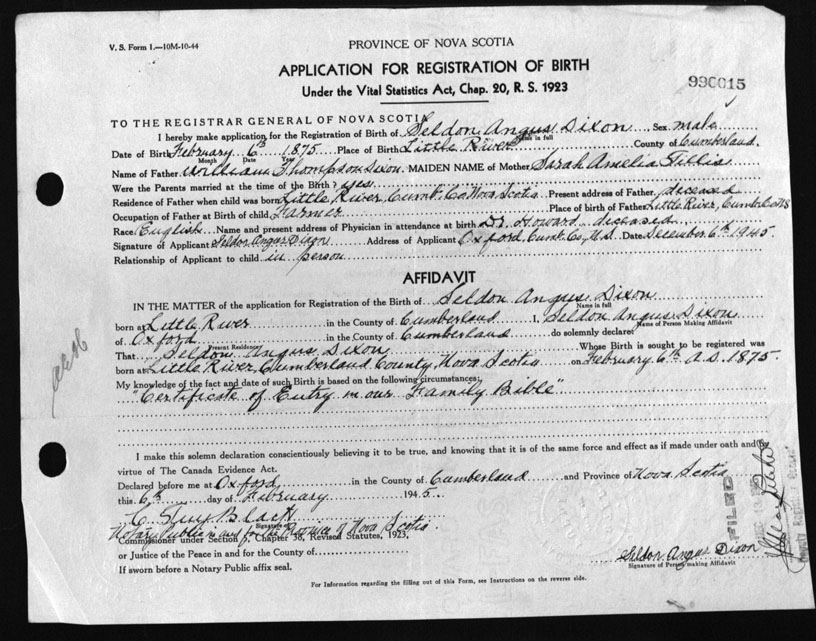 V. S. Form 1.—10M-10-44
PROVINCE OF NOVA SCOTIA
APPLICATION FOR REGISTRATION OF BIRTH
990015
Under the Vital Statistics Act, Chap. 20, R. S. 1923
TO THE REGISTRAR GENERAL OF NOVA SCOTIA
I hereby make application for the Registration of Birth of Seldon Angus Dixon Sex male
Name in full
Date of Birth February 6th 1875 Place of Birth Little River County of Cumberland
Month Date Year
Name of Father William Thompson Dixon MAIDEN NAME of Mother Sarah Amelia
Were the Parents married at the time of the Birth? yes
Residence of Father when child was born Little River, Cumb. Co. Nova Scotia Present address of Father deceased
Occupation of Father at Birth of child Farmer Place of birth of Father Little River, Cumber. Co. N.S
Race English Name and present address of Physician in attendance at birth Dr. Howard deceased
Signature of Applicant Seldon Angus Dixon Address of Applicant Oxford, Cumb. Co., N.S. Date December 6th 1945.
Relationship of Applicant to child in person
AFFIDAVIT
IN THE MATTER of the application for Registration of the Birth of Seldon Angus Dixon
Name in full
born at Little River in the County of Cumberland I, Seldon Angus Dixon
Name of Person Making Affidavit
of Oxford in the County of Cumberland do solemnly declare:
Present Residence
That Seldon Angus Dixon Whose Birth is sought to be registered was
born at Little River, Cumberland County, Nova Scotia on February 6th A.D. 1875.
My knowledge of the fact and date of such Birth is based on the following circumstances:
"Certificate of Entry in our Family Bible"
I make this solemn declaration conscientiously believing it to be true, and knowing that it is of the same force and effect as if made under oath and by
virtue of The Canada Evidence Act.
Declared before me at Oxford in the County of Cumberland and Province of Nova Scotia
this 6th day of February 1945.
Black
Signature
Notary Public in and for the Province of Nova Scotia.
Commissioner under Section 7, Chapter 38, Revised Statutes, 1923,
or Justice of the Peace in and for the County of
If sworn before a Notary Public affix seal.
Seldon Angus Dixon
Signature of Person making Affidavit
For Information regarding the filling out of this Form, see Instructions on the reverse side.
FILED